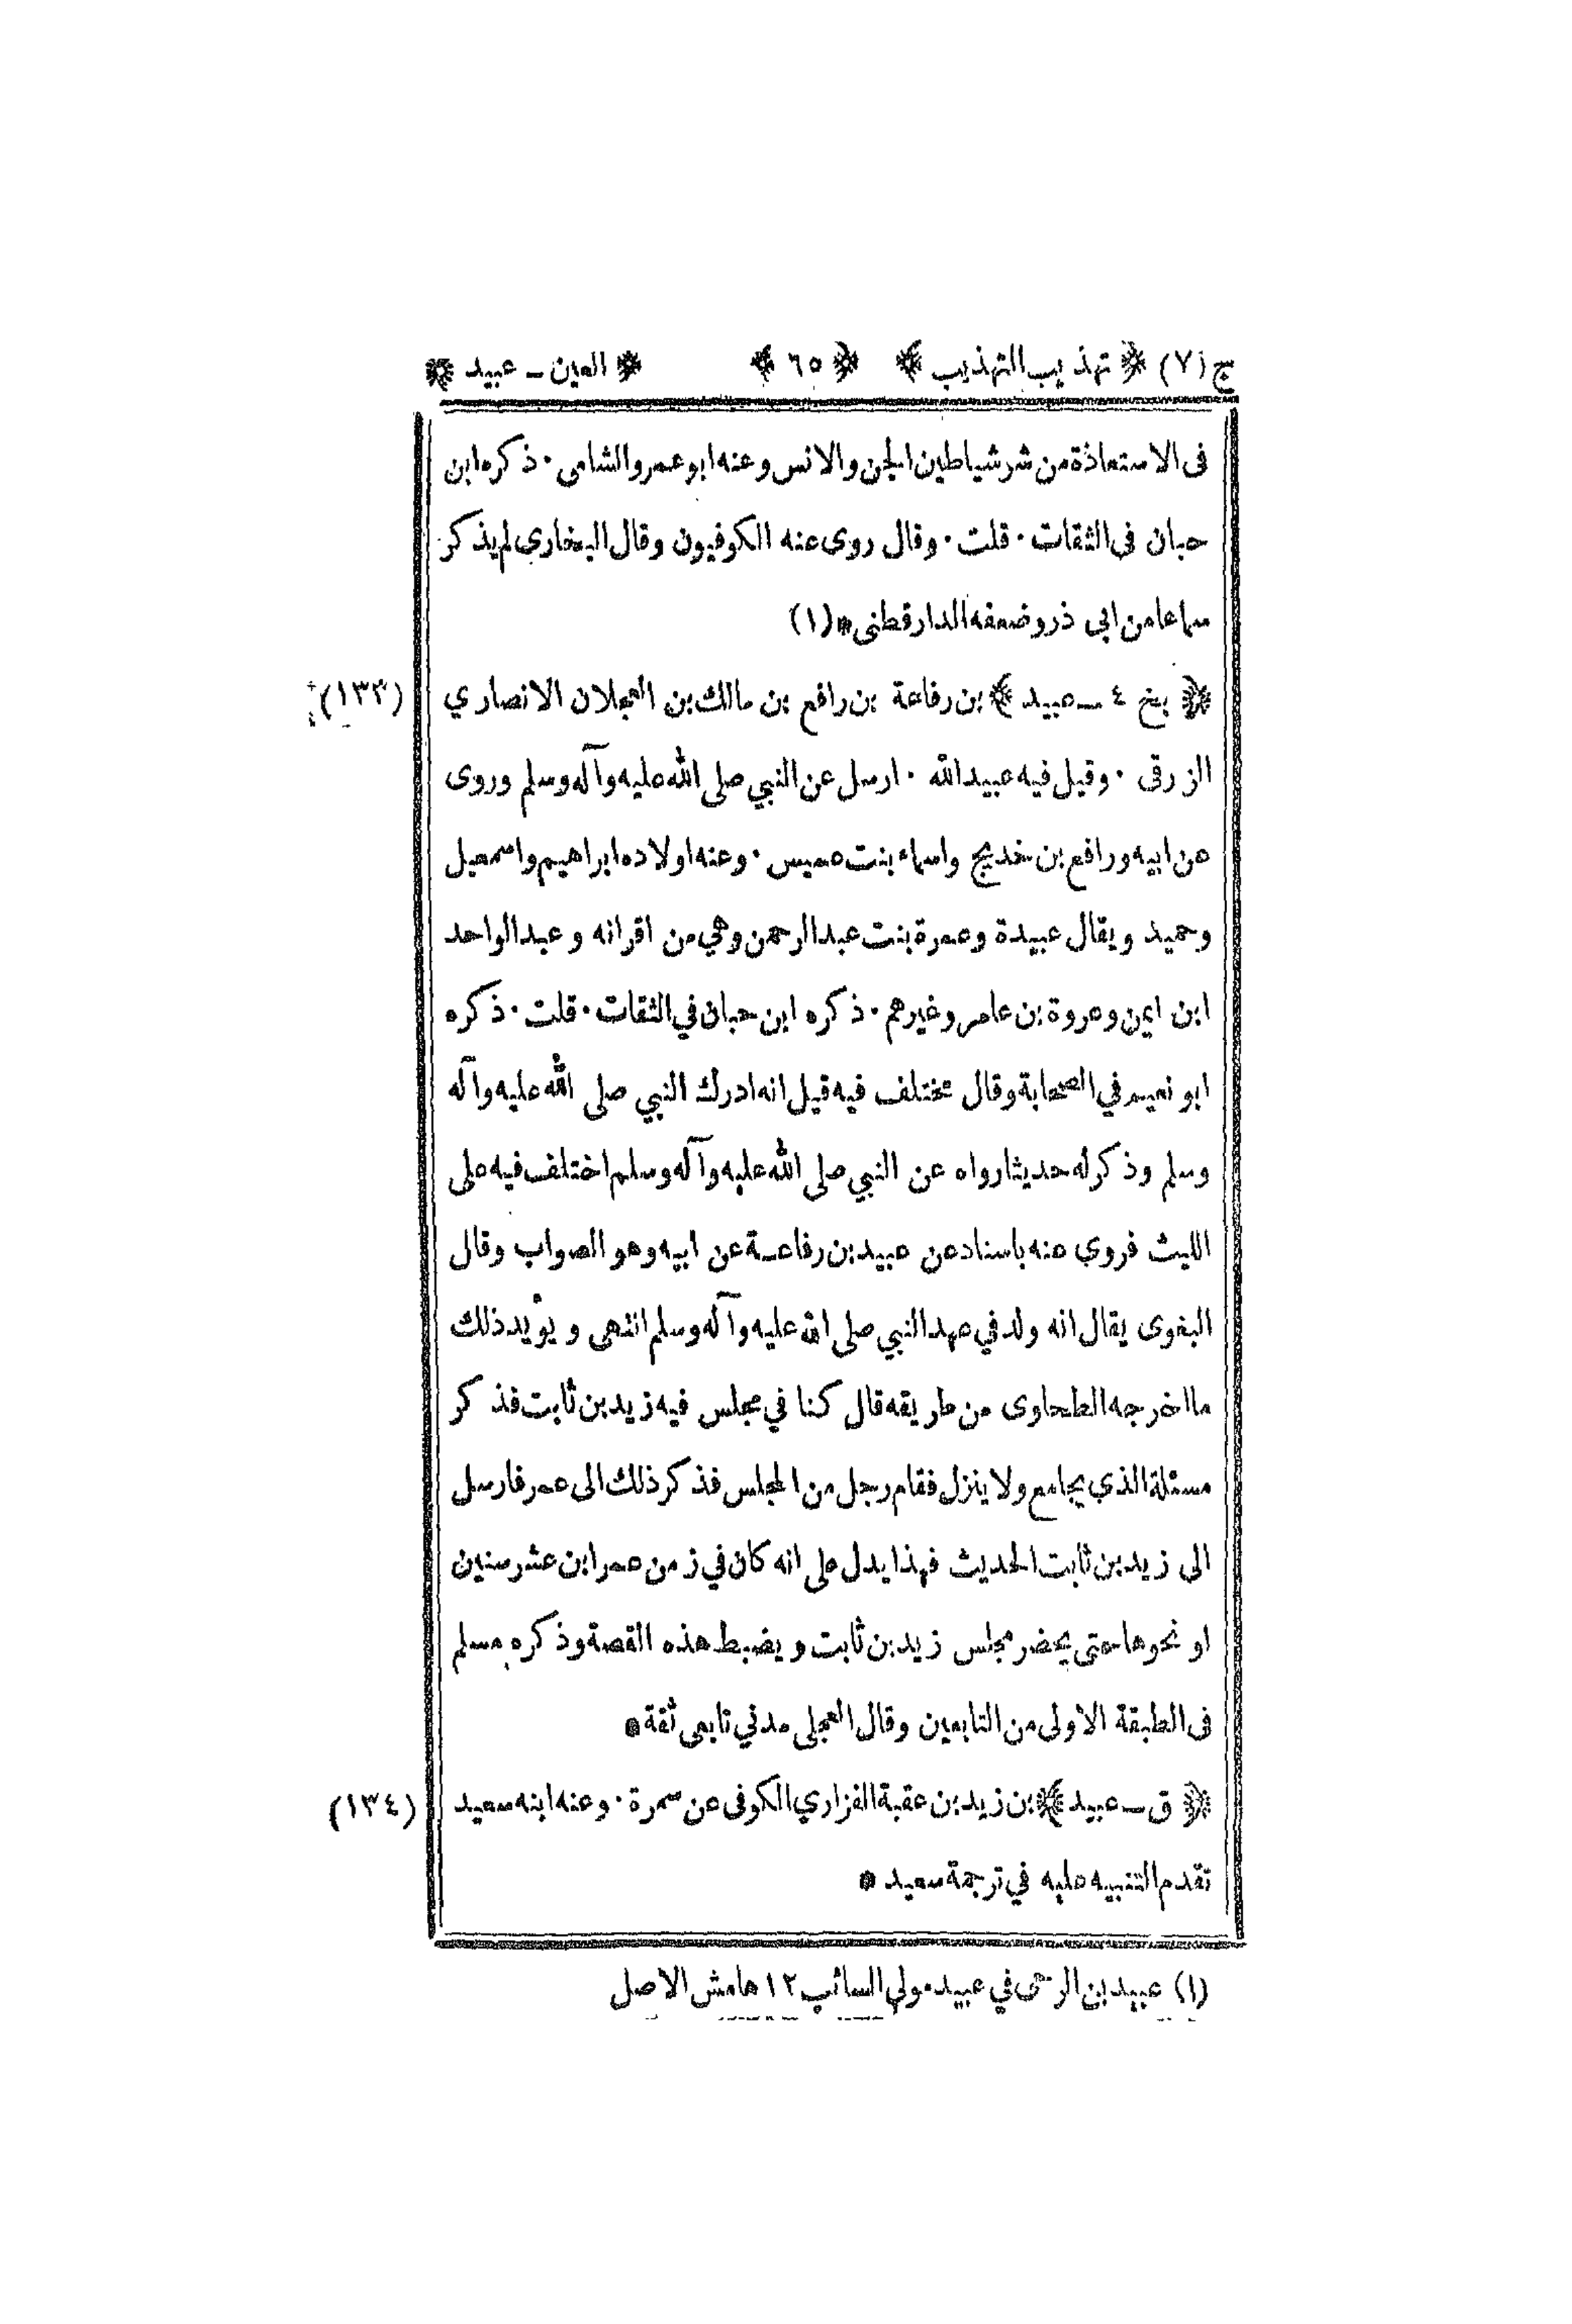 ج (٧) ﴿ تهذيب التهذيب ﴾ ﴿ ٦٥ ﴾ ﴿ العين ـ عبيد ﴾
فى الاستعاذة من شر شياطين الجن والانس وعنه ابو عمرو الشامى ٠ ذكره ابن
حبان فى الثقات ٠ قلت ٠ وقال روى عنه الكوفيون وقال البخاري لم يذكر
سماعا من ابى ذر وضعفه الدارقطنى * (١)
﴿ بخ ٤ ـ عبيد ﴾ بن رفاعة بن رافع بن مالك بن العجلان الانصاري (١٣٣)
الزرقى ٠ وقيل فيه عبيد الله ٠ ارسل عن النبي صلى الله عليه وآله وسلم وروى
عن ابيه ورافع بن خديج واسماء بنت عميس ٠ وعنه اولاده ابراهيم واسمعيل
وحميد ويقال عبيدة وعمرة بنت عبدالرحمن وهي من اقرانه وعبدالواحد
ابن ايمن وعروة بن عامر وغيرهم ٠ ذكره ابن حبان في الثقات ٠ قلت ٠ ذكره
ابو نعيم في الصحابة وقال مختلف فيه قيل انه ادرك النبي صلى الله عليه وآله
وسلم وذكر له حديثا رواه عن النبي صلى الله عليه وآله وسلم اختلف فيه على
الليث فروي عنه باسناد عن عبيد بن رفاعة عن ابيه وهو الصواب وقال
البغوى يقال انه ولد في عهد النبي صلى الله عليه وآله وسلم انتهى ويؤيد ذلك
ما اخرجه الطحاوى من طريقه قال كنا في مجلس فيه زيد بن ثابت فذكر
مسئلة الذي يجامع ولا ينزل فقام رجل من المجلس فذكر ذلك الى عمر فارسل
الى زيد بن ثابت الحديث فهذا يدل على انه كان في زمن عمر ابن عشر سنين
او نحوها حتى يحضر مجلس زيد بن ثابت ويضبط هذه القصة وذكره مسلم
فى الطبقة الاولى من التابعين وقال العجلى مدني تابعى ثقة *
﴿ ق ـ عبيد ﴾ بن زيد بن عقبة الفزاري الكوفى عن سمرة ٠ وعنه ابنه سعيد (١٣٤)
تقدم التنبيه عليه في ترجمة سعيد *
(١) عبيد بن الرحى في عبيد مولي السائب ١٢ هامش الاصل